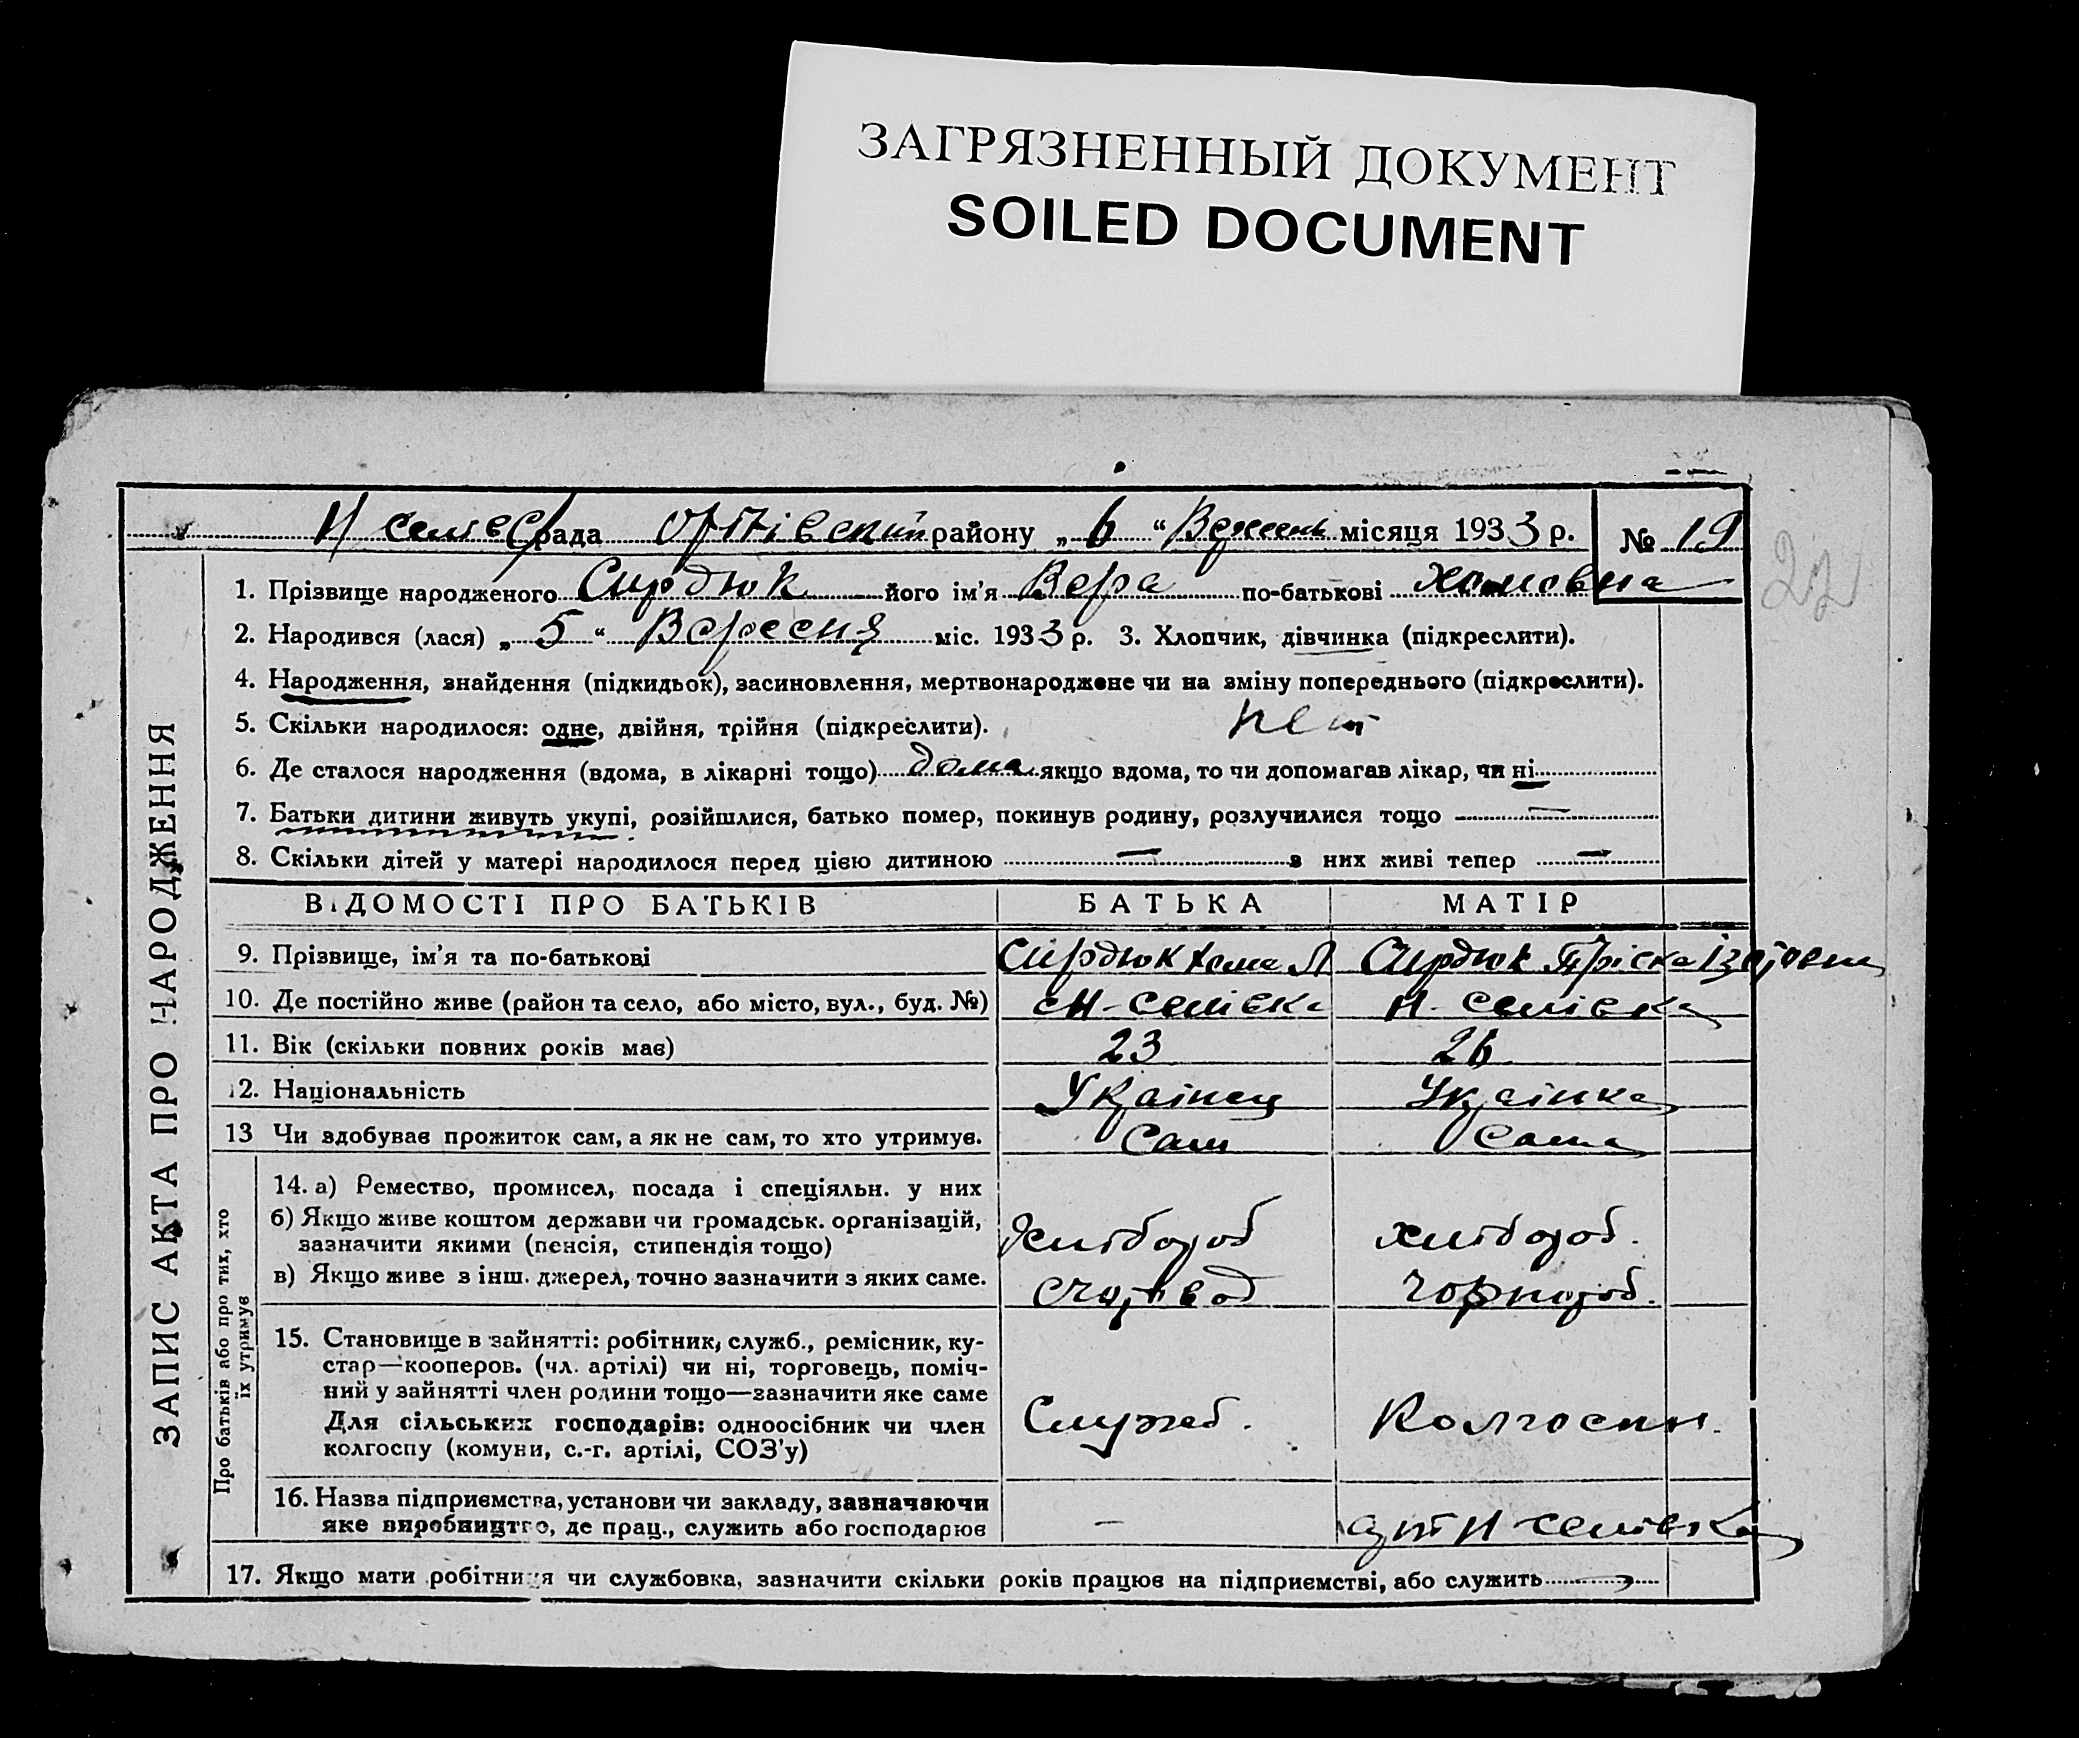 ЗАГРЯЗНЕННЫЙ ДОКУМЕНТ
SOILED DOCUMENT
рада району „ 6 “ місяця 1933 р. № 19
22
1. Прізвище народженого Сирдюк його ім'я Вера по-батькові Хомовна
2. Народився (лася) „ 5 “ Вересня міс. 1933 р. 3. Хлопчик, дівчинка (підкреслити).
4. Народження, знайдення (підкидьок), засиновлення, мертвонароджене чи на зміну попереднього (підкреслити).
5. Скільки народилося: одне, двійня, трійня (підкреслити). нет
6. Де сталося народження (вдома, в лікарні тощо) дома якщо вдома, то чи допомагав лікар, чи ні
7. Батьки дитини живуть укупі, розійшлися, батько помер, покинув родину, розлучилися тощо —
8. Скільки дітей у матері народилося перед цією дитиною — з них живі тепер —
ВІДОМОСТІ ПРО БАТЬКІВ БАТЬКА МАТІР
9. Прізвище, ім'я та по-батькові Сирдюк Хома Л Сирдюк Пріска
10. Де постійно живе (район та село, або місто, вул., буд. №) с Н-Селівка Н-Селівка
11. Вік (скільки повних років має) 23 26
12. Національність Українец Українка
13 Чи здобував прожиток сам, а як не сам, то хто утримує. Сам Сама
14. а) Ремество, промисел, посада і спеціяльн. у них
б) Якщо живе коштом держави чи громадськ. організацій,
зазначити якими (пенсія, стипендія тощо) Хлібороб хлібороб.
в) Якщо живе з інш. джерел, точно зазначити з яких саме. счотовод чорнороб.
15. Становище в зайнятті: робітник, служб., ремісник, ку-
стар—кооперов. (чл. артілі) чи ні, торговець, поміч-
ний у зайнятті член родини тощо—зазначити яке саме
Для сільських господарів: одноосібник чи член Служб. Колгоспн.
колгоспу (комуни, с.-г. артілі, СОЗ'у)
16. Назва підприємства, установи чи закладу, зазначаючи
яке виробництво, де прац., служить або господарює — Н Селівка
17. Якщо мати робітниця чи службовка, зазначити скільки років працює на підприємстві, або служить
ЗАПИС АКТА ПРО НАРОДЖЕННЯ
Про батьків або про тих, хто
їх утримує